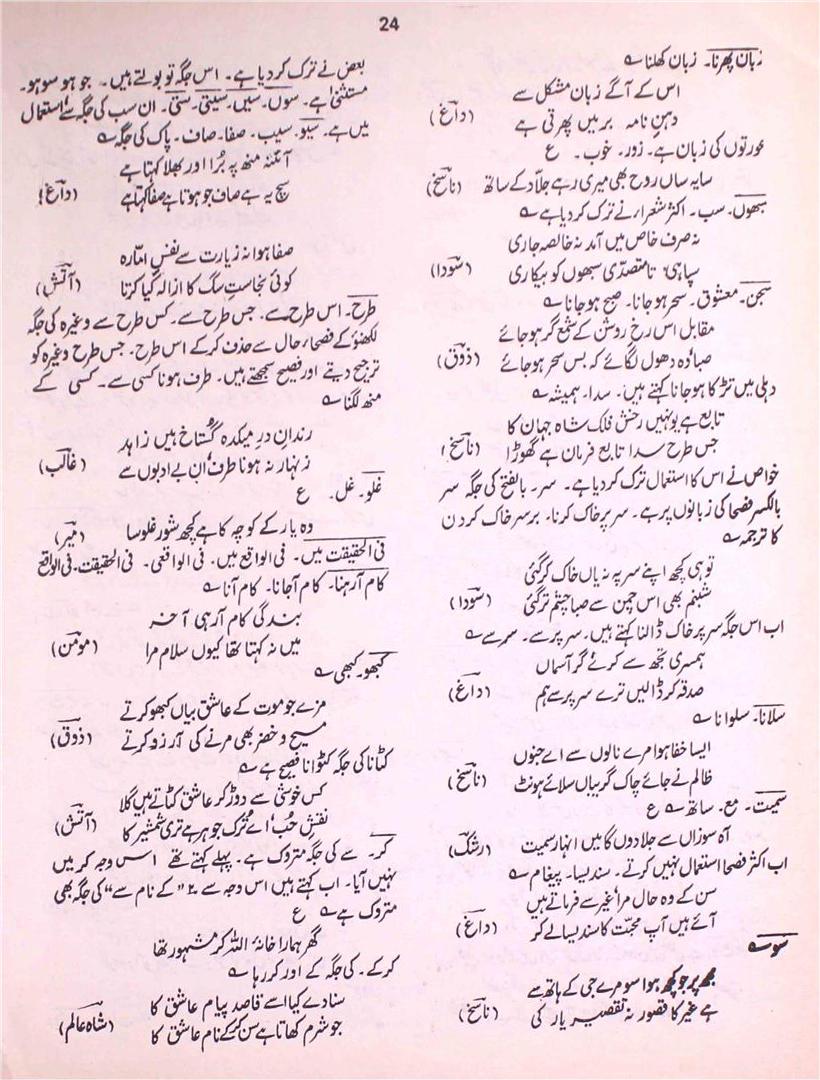 24
زبان پھرنا۔ زبان کھلنا ؎
اس کے آگے زبان مشکل سے
دہن نامہ بر میں پھرتی ہے (داغؔ)
عورتوں کی زبان ہے۔ زور۔ خوب۔ ع
سایہ ساں روح بھی میری رہے جلّاد کے ساتھ (ناسخؔ)
سبھوں۔ سب۔ اکثر شعراء نے ترک کردیا ہے ؎
نہ صرف خاص میں آمد نہ خالصہ جاری
سپاہی تا متصدّی سبھوں کو بیکاری (سوداؔ)
سجن۔ معشوق۔ سحر ہوجانا۔ صبح ہوجانا ؎
مقابل اس رخِ روشن کے شمع گر ہوجائے
صبا وُہ دھول لگائے کہ بس سحر ہوجائے (ذوقؔ)
دہلی میں تڑکا ہوجانا کہتے ہیں۔ سدا۔ ہمیشہ ؎
تابع ہے یونہیں رخشِ فلک شاہِ جہان کا
جس طرح سدا تابعِ فرمان ہے گھوڑا (ناسخؔ)
خواص نے اس کا استعمال ترک کردیا ہے۔ سر۔ بالفتح کی جگہ سر
بالکسر فصحا کی زبانوں پر ہے۔ سر پر خاک کرنا۔ بر سر خاک کردن
کا ترجمہ ؎
تو ہی کچھ اپنے سر پہ نہ یاں خاک کرگئی
شبنم بھی اس چمن سے صبا چشم تر گئی (سوداؔ)
اب اس جگہ سر پر خاک ڈالنا کہتے ہیں۔ سر پر سے۔ سر سے ؎
ہمسری تجھ سے کرئے گر آسماں
صدقہ کر ڈالیں ترے سر پر سے ہم (داغؔ)
سلانا۔ سلوانا ؎
ایسا خفا ہوا مرے نالوں سے اے جنوں
ظالم نے جائے چاک گریباں سلائے ہونٹ (ناسخؔ)
سمیت۔ مع۔ ساتھ ؎ ع
آہ سوزاں سے جلا دوں گا میں انہار سمیت (رشکؔ)
اب اکثر فصحا استعمال نہیں کرتے۔ سندیسا۔ پیغام ؎
سن کے وہ حال مرا غیر سے فرماتے ہیں
آئے ہیں آپ محبّت کا سندیسا لے کر (داغؔ)
سو ؎
مجھ پر جو کچھ ہوا سو مرے جی کے ہاتھ سے
ہے غیر کا قصور نہ تقصیر یار کی (ناسخؔ)
بعض نے ترک کردیا ہے۔ اس جگہ تو بولتے ہیں۔ جو ہو سو ہو۔
مستثنیٰ ہے۔ سوں۔ سیں۔ سیتی۔ ستی۔ ان سب کی جگہ سے استعمال
میں ہے۔ سیو۔ سیب۔ صفا۔ صاف۔ پاک کی جگہ ؎
آئنہ منھ پر بُرا اور بھلا کہتا ہے
سچ یہ ہے صاف جو ہوتا ہے صفا کہتا ہے (داغؔ)
صفا ہوا نہ زیارت سے نفسِ امّارہ
کوئی نجاستِ سگ کا ازالہ کیا کرتا (آتشؔ)
طرح۔ اس طرح سے۔ جس طرح سے۔ کس طرح سے وغیرہ کی جگہ
لکھنؤ کے فصحاء حال سے حذف کرکے اس طرح۔ جس طرح وغیرہ کو
ترجیح دیتے اور فصیح سمجھتے ہیں۔ طرف ہونا کسی سے۔ کسی کے
منھ لگنا ؎
رندانِ درِ میکدہ گستاخ ہیں زاہد
زنہار نہ ہونا طرف ان بے ادبوں سے (غالبؔ)
غلو۔ غل۔ ع
وہ یار کے کوچہ کا ہے کچھ شور غلو سا (میرؔ)
فی الحقیقت میں۔ فی الواقع میں۔ فی الواقعی۔ فی الحقیقت۔ فی الواقع
کام آرہنا۔ کام آجانا۔ کام آنا ؎
بندگی کام آرہی آخر
میں نہ کہتا تھا کیوں سلام مرا (مومنؔ)
کبھو۔ کبھی ؎
مزے جو موت کے عاشق بیاں کبھو کرتے
مسیح و خضر بھی مرنے کی آرزو کرتے (ذوقؔ)
کٹانا کی جگہ کٹوانا فصیح ہے ؎
کس خوشی سے دوڑ کر عاشق کٹاتے ہیں گلا
نقشِ حُب اے تُرک جوہر ہے تری شمشیر کا (آتشؔ)
کر۔ سے کی جگہ متروک ہے۔ پہلے کہتے تھے اس وجہ کر میں
نہیں آیا۔ اب کہتے ہیں اس وجہ سے۔ "کے نام سے" کی جگہ بھی
متروک ہے ؎ ع
گھر ہمارا خانۂ اللہ کر مشہور تھا
کرکے۔ کی جگہ کے اور کر رہا ؎
سنا دے کیا اسے قاصد پیام عاشق کا
جو شرم کھاتا ہے سن کرکے نام عاشق کا (شاہ عالمؔ)